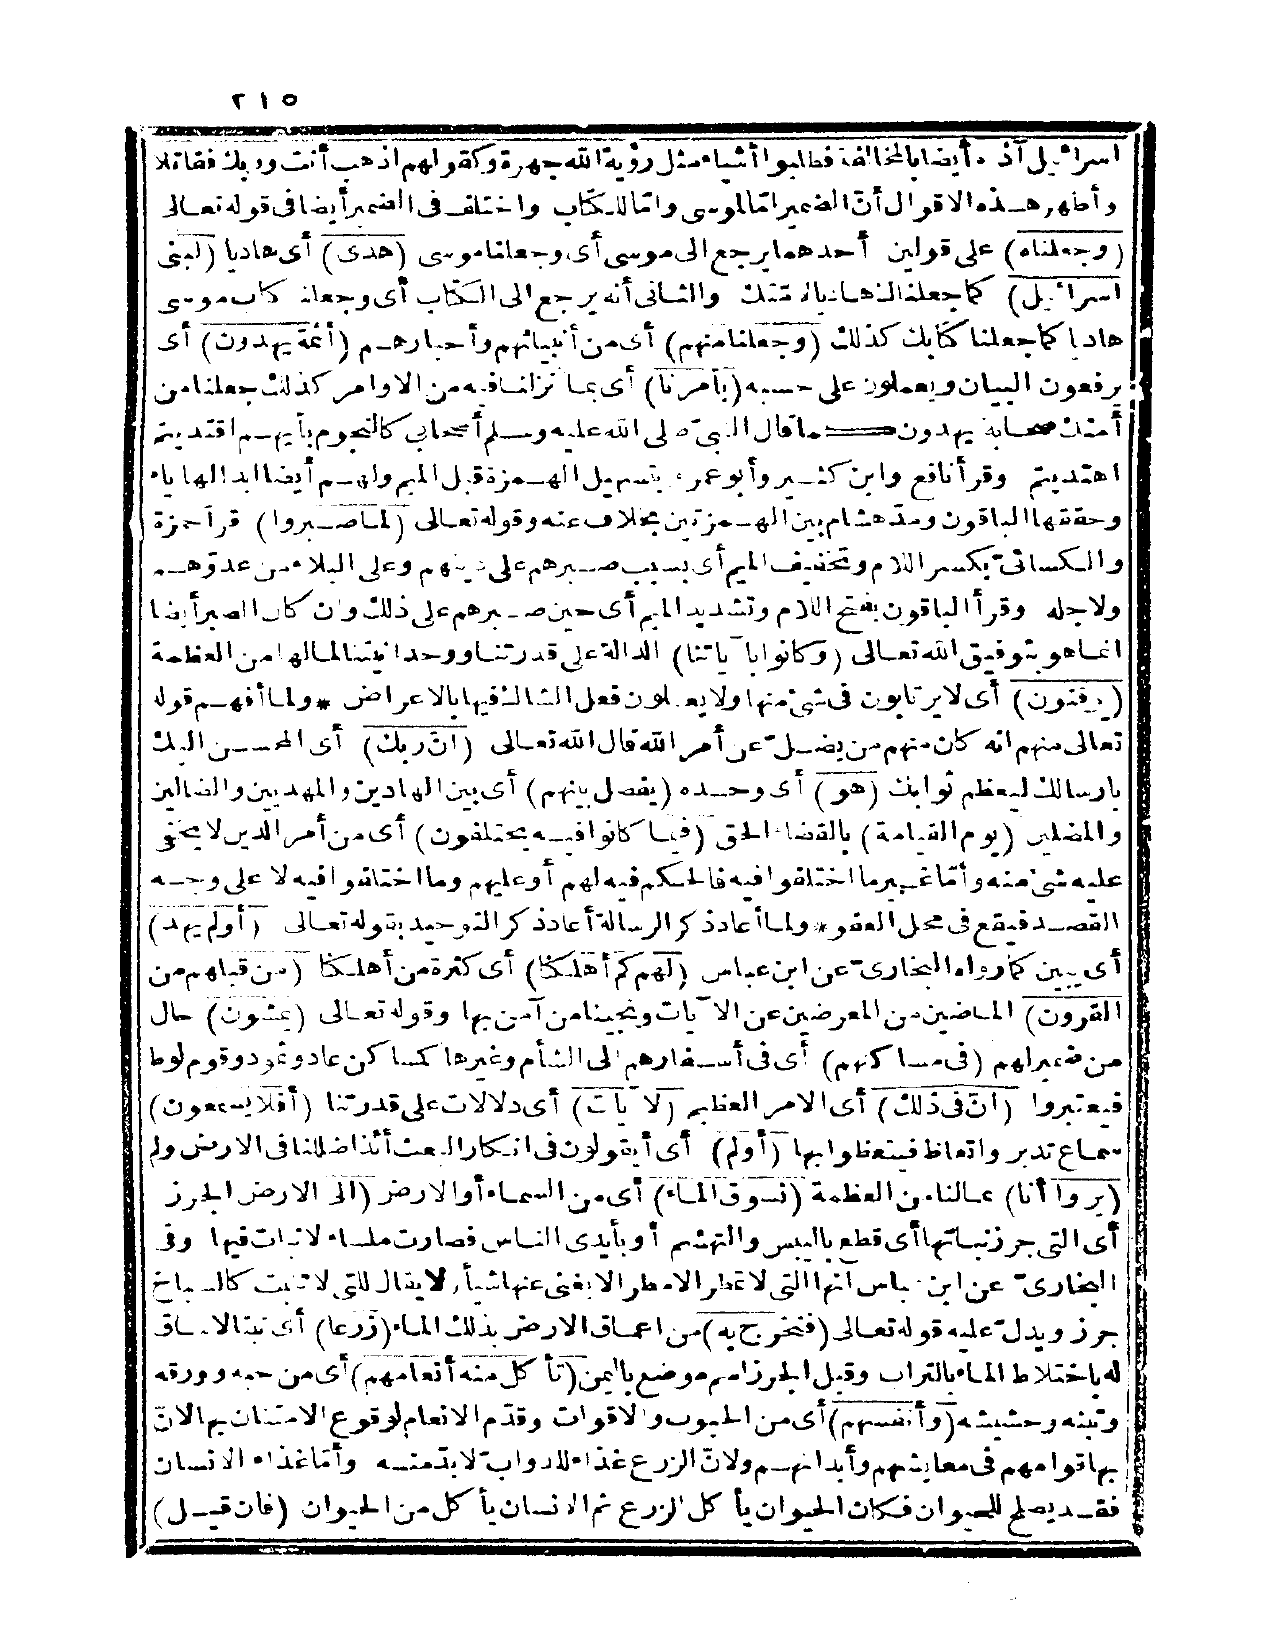 ٢١٥
اسرائيل آذوه أيضا بالمخالفة فطلبوا أشياء مثل رؤية الله جهرة وكقولهم اذهب أنت وربك فقاتلا
وأظهر هذه الاقوال أنّ الضمير امّا لموسى وامّا للكتاب واختلف فى الضمير أيضا فى قوله تعالى
(وجعلناه) على قولين أحدهما يرجع الى موسى أى وجعلنا موسى (هدى) أى هاديا (لبنى
اسرائيل) كما جعلناك هاديا لامّتك والثانى أنه يرجع الى الكتاب أى وجعلنا كتاب موسى
هاديا كما جعلنا كتابك كذلك (وجعلنا منهم) أى من أنبيائهم وأحبارهم (أئمة يهدون) أى
يرفعون البيان ويعملون على حسبه (بأمرنا) أى بما نزلنا فيه من الاوامر كذلك جعلنا من
أمتك صحابة يهدون كما قال النبىّ صلى الله عليه وسلم أصحابى كالنجوم بأيهم اقتديتم
اهتديتم وقرأ نافع وابن كثير وأبو عمرو بتسهيل الهمزة قبل الميم ولهم أيضا ابدالها ياء
وحققها الباقون ومدّ هشام بين الهمزتين بخلاف عنه وقوله تعالى (لما صبروا) قرأ حمزة
والكسائىّ بكسر اللام وتخفيف الميم أى بسبب صبرهم على دينهم وعلى البلاء من عدوّهم
ولاجله وقرأ الباقون بفتح اللام وتشديد الميم أى حين صبرهم على ذلك وان كان الصبر أيضا
انما هو بتوفيق الله تعالى (وكانوا بآياتنا) الدالة على قدرتنا ووحدانيتنا لما لها من العظمة
(يوقنون) أى لا يرتابون فى شئ منها ولا يعملون فعل الشاك فيها بالاعراض * ولما أفهم قوله
تعالى منهم انه كان منهم من يضلّ عن أمر الله قال الله تعالى (انّ ربك) أى المحسن اليك
بارسالك ليعظم ثوابك (هو) أى وحده (يفصل بينهم) أى بين الهادين والمهديين والضالين
والمضلين (يوم القيامة) بالقضاء الحق (فيما كانوا فيه يختلفون) أى من أمر الدين لا يخفى
عليه شئ منه وأمّا غير ما اختلفوا فيه فالحكم فيه لهم أو عليهم وما اختلفوا فيه لا على وجه
القصد فيقع فى محل العفو * ولما أعاد ذكر الرسالة أعاد ذكر التوحيد بقوله تعالى (أولم يهد)
أى يبين كما رواه البخارىّ عن ابن عباس (لهم كم أهلكنا) أى كثرة من أهلكنا (من قبلهم من
القرون) الماضين من المعرضين عن الآيات ونجينا من آمن بها وقوله تعالى (يمشون) حال
من ضمير لهم (فى مساكنهم) أى فى أسفارهم الى الشأم وغيرها كمساكن عاد وثمود وقوم لوط
فيعتبروا (انّ فى ذلك) أى الامر العظيم (لآيات) أى دلالات على قدرتنا (أفلا يسمعون)
سماع تدبر واتعاظ فيتعظوا بها (أولم) أى أيقولون فى انكار البعث أئذا ضللنا فى الارض ولم
(يروا أنا) بمالنا من العظمة (نسوق الماء) أى من السماء أو الارض (الى الارض الجرز
أى التى جرز نباتها أى قطع باليبس والتهشم أو بأيدى الناس فصارت ملساء لا نبات فيها وفى
البخارىّ عن ابن عباس انها التى لا تمطر الا مطرا لا يغنى عنها شيأ ولا يقال للتى لا تنبت كالسباخ
جرز ويدلّ عليه قوله تعالى (فنخرج به) من اعماق الارض بذلك الماء (زرعا) أى نبتا لا ساق
له باختلاط الماء بالتراب وقيل الجرز اسم موضع باليمن (تأكل منه أنعامهم) أى من حبه وورقه
وتبنه وحشيشه (وأنفسهم) أى من الحبوب والاقوات وقدّم الانعام لوقوع الامتنان بها لانّ
بها قوامهم فى معايشهم وأبدانهم ولانّ الزرع غذاء للدواب لا بدّ منه وأمّا غذاء الانسان
فقد يصلح للحيوان فكان الحيوان يأكل الزرع ثم الانسان يأكل من الحيوان (فان قيل)